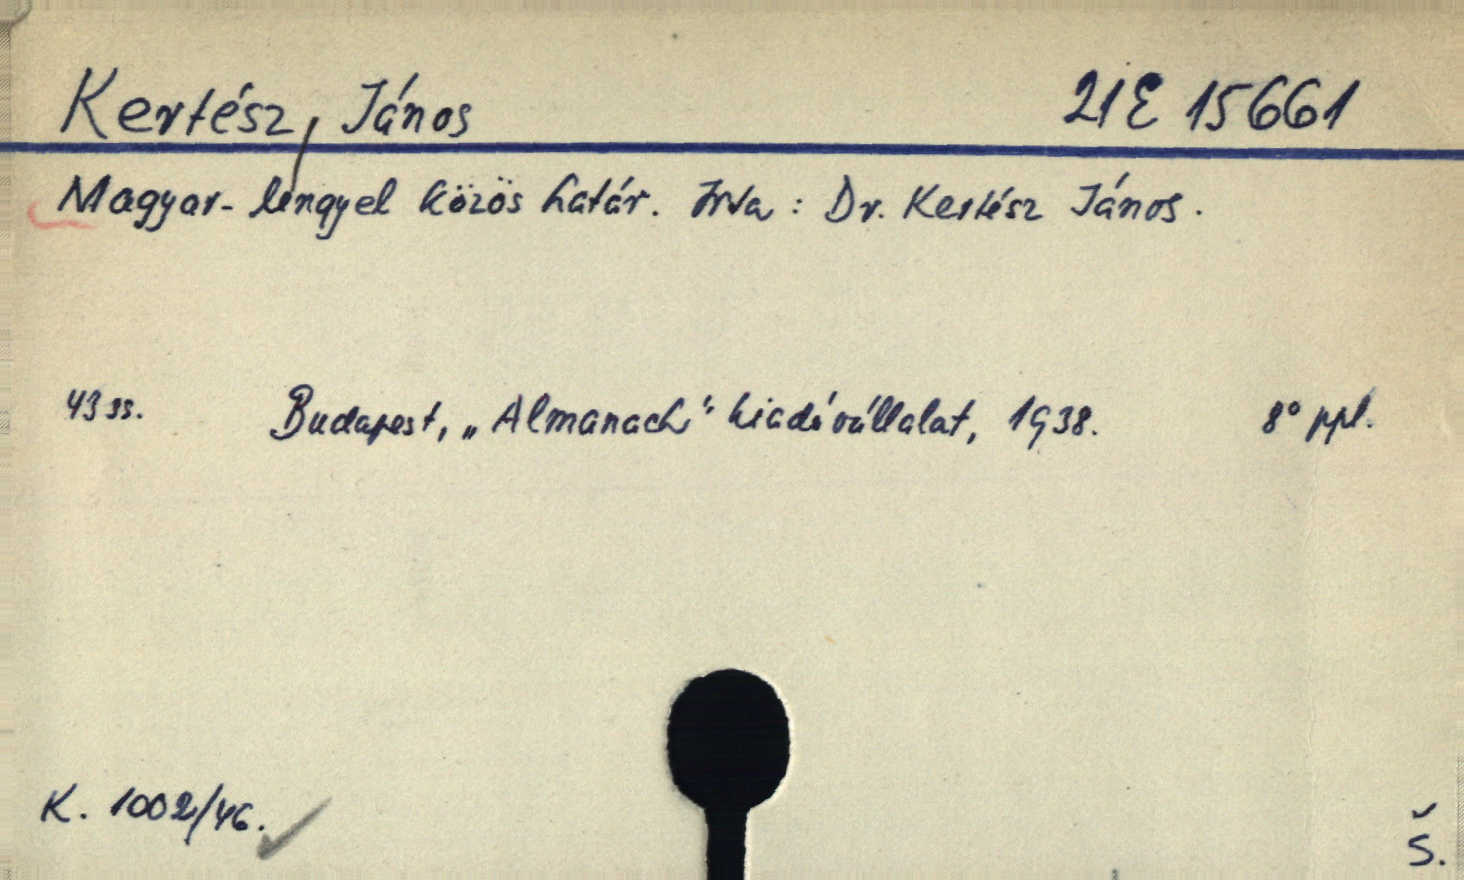 Kertész, János 21 E 15661
Magyar-lengyel közös határ. Irta: Dr. Kertész János.
43 ss. Budapest, „Almanach" kiadóvállalat, 1938. 8° ppl.
K. 1002/46.
Š.